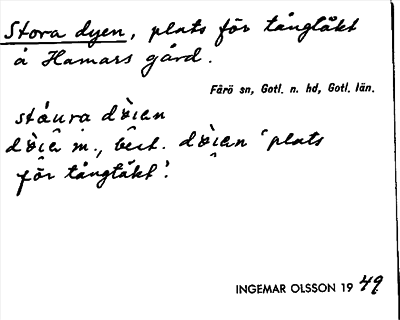 Stora dyen, plats för tångtäkt
å Hamars gård.
Fårö sn, Gotl. n. hd, Gotl. län.
ståura dø̀ien
dø̀ie m., best. dø̀ien 'plats
för tångtäkt'.
INGEMAR OLSSON 1949